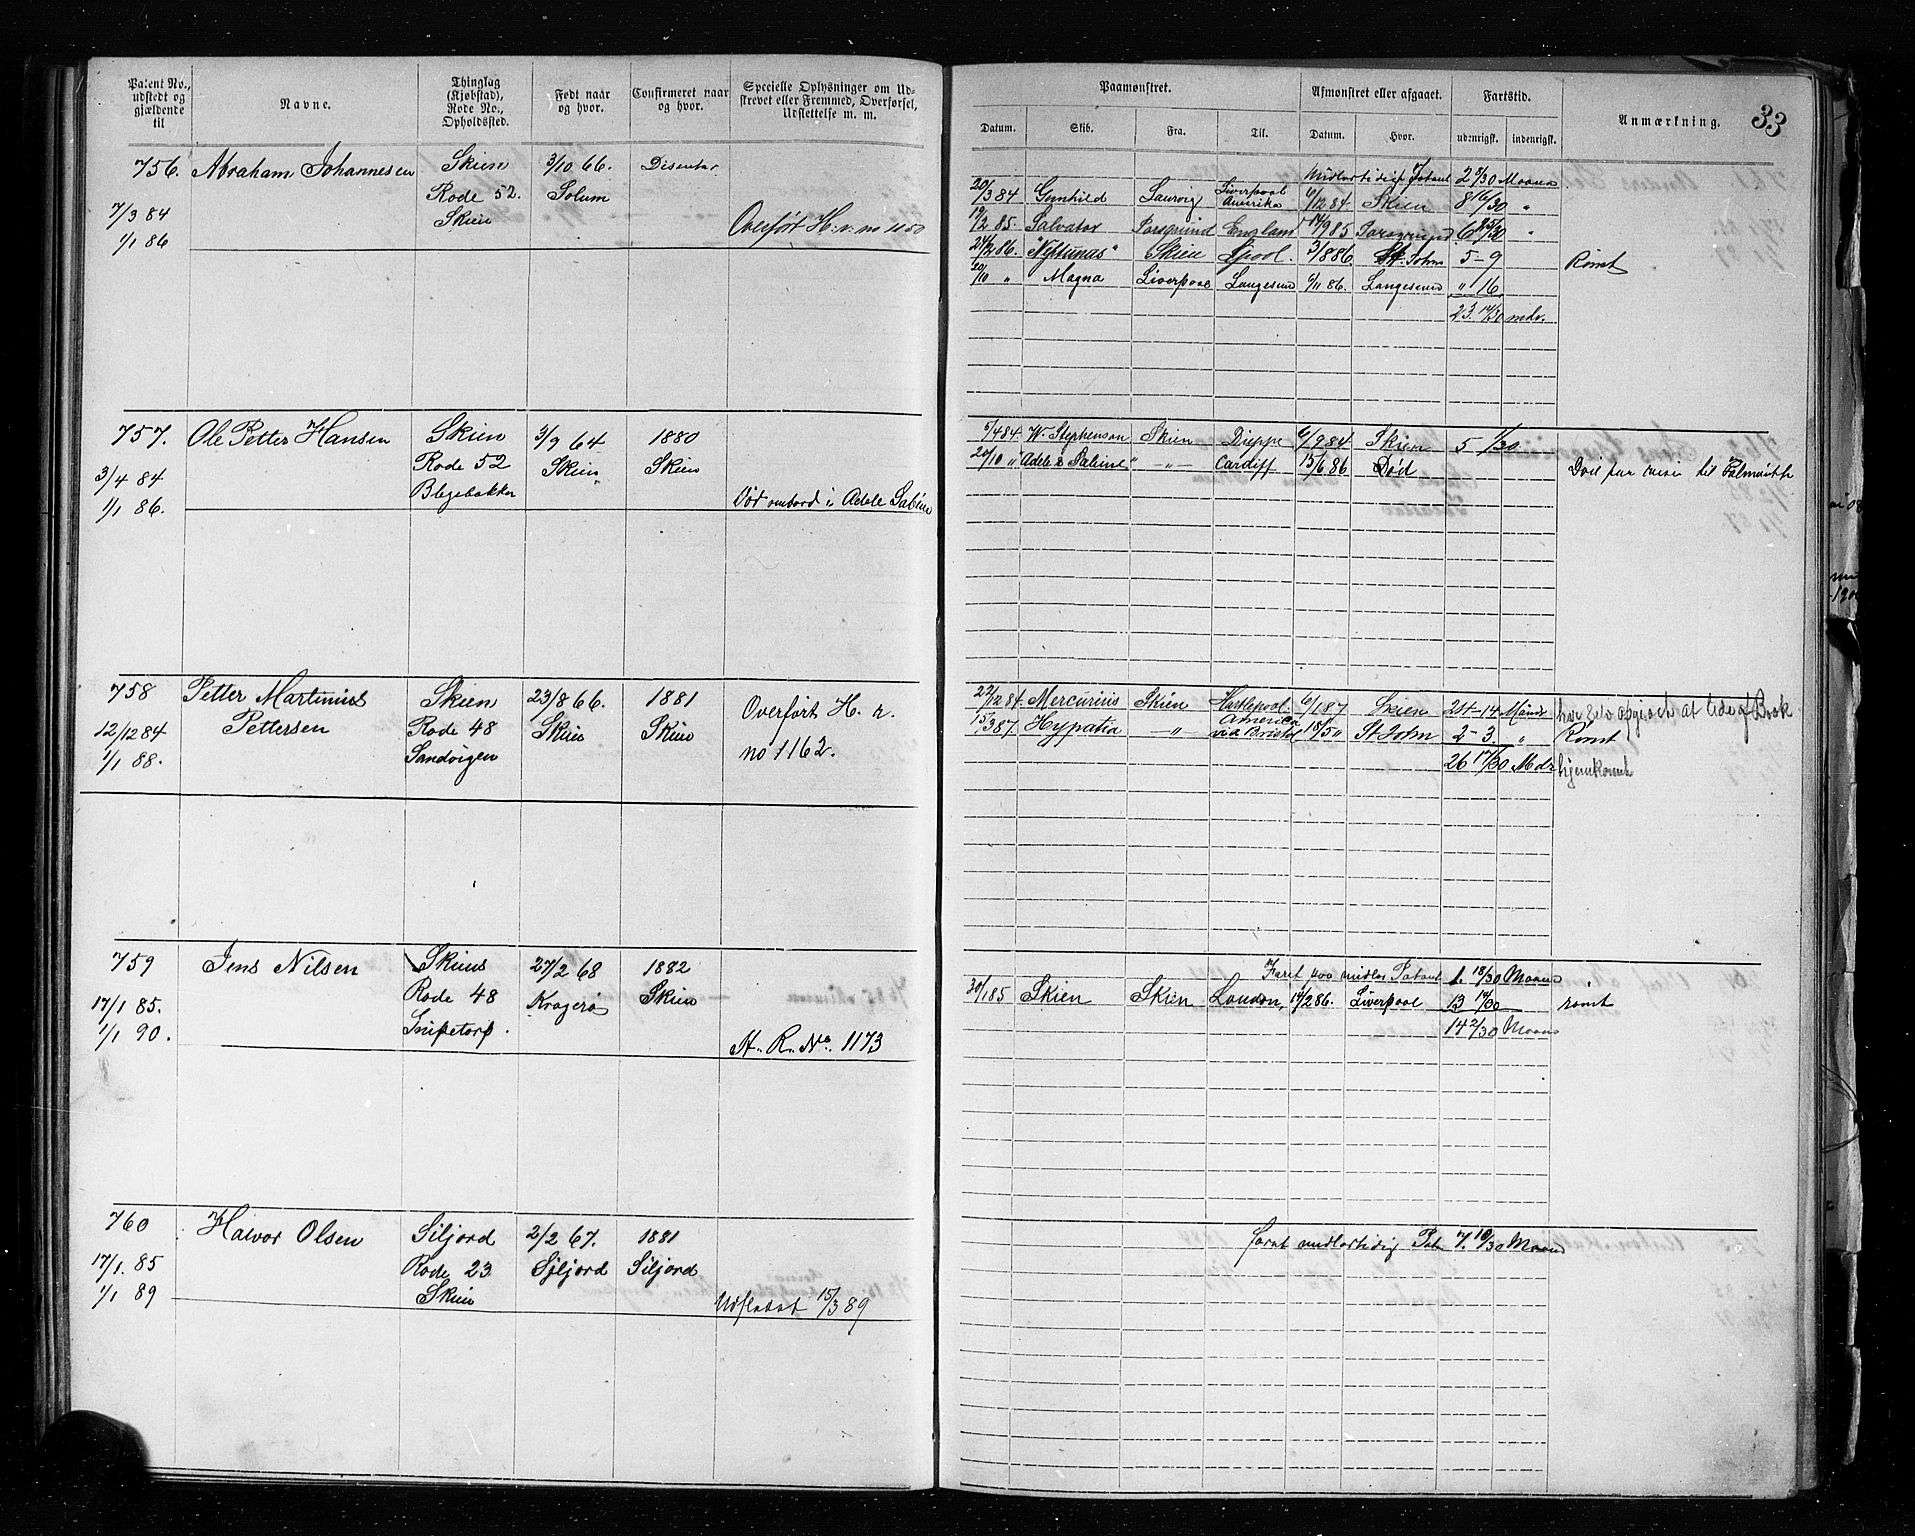 Patent No., udstedt og gjældende til
Navne.
Thinglag (Kjøbstad), Rode No., Opholdssted.
Født naar og hvor.
Confirmeret naar og hvor.
Specielle Oplysninger om Udskrevet eller Fremmed, Overførsel, Udslettelse m. m.
Paamønstret.
Afmønstret eller afgaaet.
Fartstid.
Anmærkning.
33
Datum. Skib. Fra. Til. Datum. Hvor. udenrigsk. indenrigsk.
756. Abraham Johannesen Skien 3/10 66. Disenter
Rode 52. Solum
7/3 84 Skien
1/1 86 Overført H. r. no 1150
Midlertidigt Patent 2 3/30 Maaned
20/3 84 Gunhild Laurvig Liverpool Amerika 6/12 84 Skien 8 16/30 "
19/2 85 Salvator Porsgrund England 14/9 85 Porsgrund 6 25/30 "
24/2 86. "Neptunus" Skien L.pool. 3/8 86 St. John 5-9 Rømt
20/10 " Magna Liverpool Langesund 6/11 86. Langesund " 16
23. 17/30 mdr.
757. Ole Petter Hansen Skien 3/9 64 1880
Rode 52 Skien Skien
3/4 84 Blegebakken
1/1 86. Død ombord i Adele Sabine
5/4 84 W. Stephenson Skien Dieppe 6/9 84 Skien 5 1/30
20/10 " "Adele & Sabine" -"- Cardiff 15/6 86 Død
758 Petter Martinius Skien 23/8 66. 1881 Overført H. r.
Pettersen Rode 48 Skien Skien no 1162.
12/12 84 Sandvigen
1/1 88.
22/12 84. Mercurius Skien Hartlepool. 6/1 87 Skien 24-14 Mdr
15/3 87. Hypatia -"- America via Bristol 18/5 " St John 2-3. " Rømt
26 17/30 Mdr hjemkomt
759 Jens Nilsen Skiens 27/2 68 1882
Rode 48 Kragerø Skien
17/1 85. Snipetorp.
1/1 90. H. R. No. 1173
Faret paa midler. Patent 1. 18/30 Maaned
30/1 85 Skien Skien London, 14/2 86. Liverpool 13 14/30 rømt
14 2/30 Maans
760 Halvor Olsen Siljord 2/2 67. 1881
17/1. 85 Rode 23 Siljord Siljord
1/1 89 Skien Udslettet 15/3 89
faret midlertidig Pat 7. 10/30 Maaned